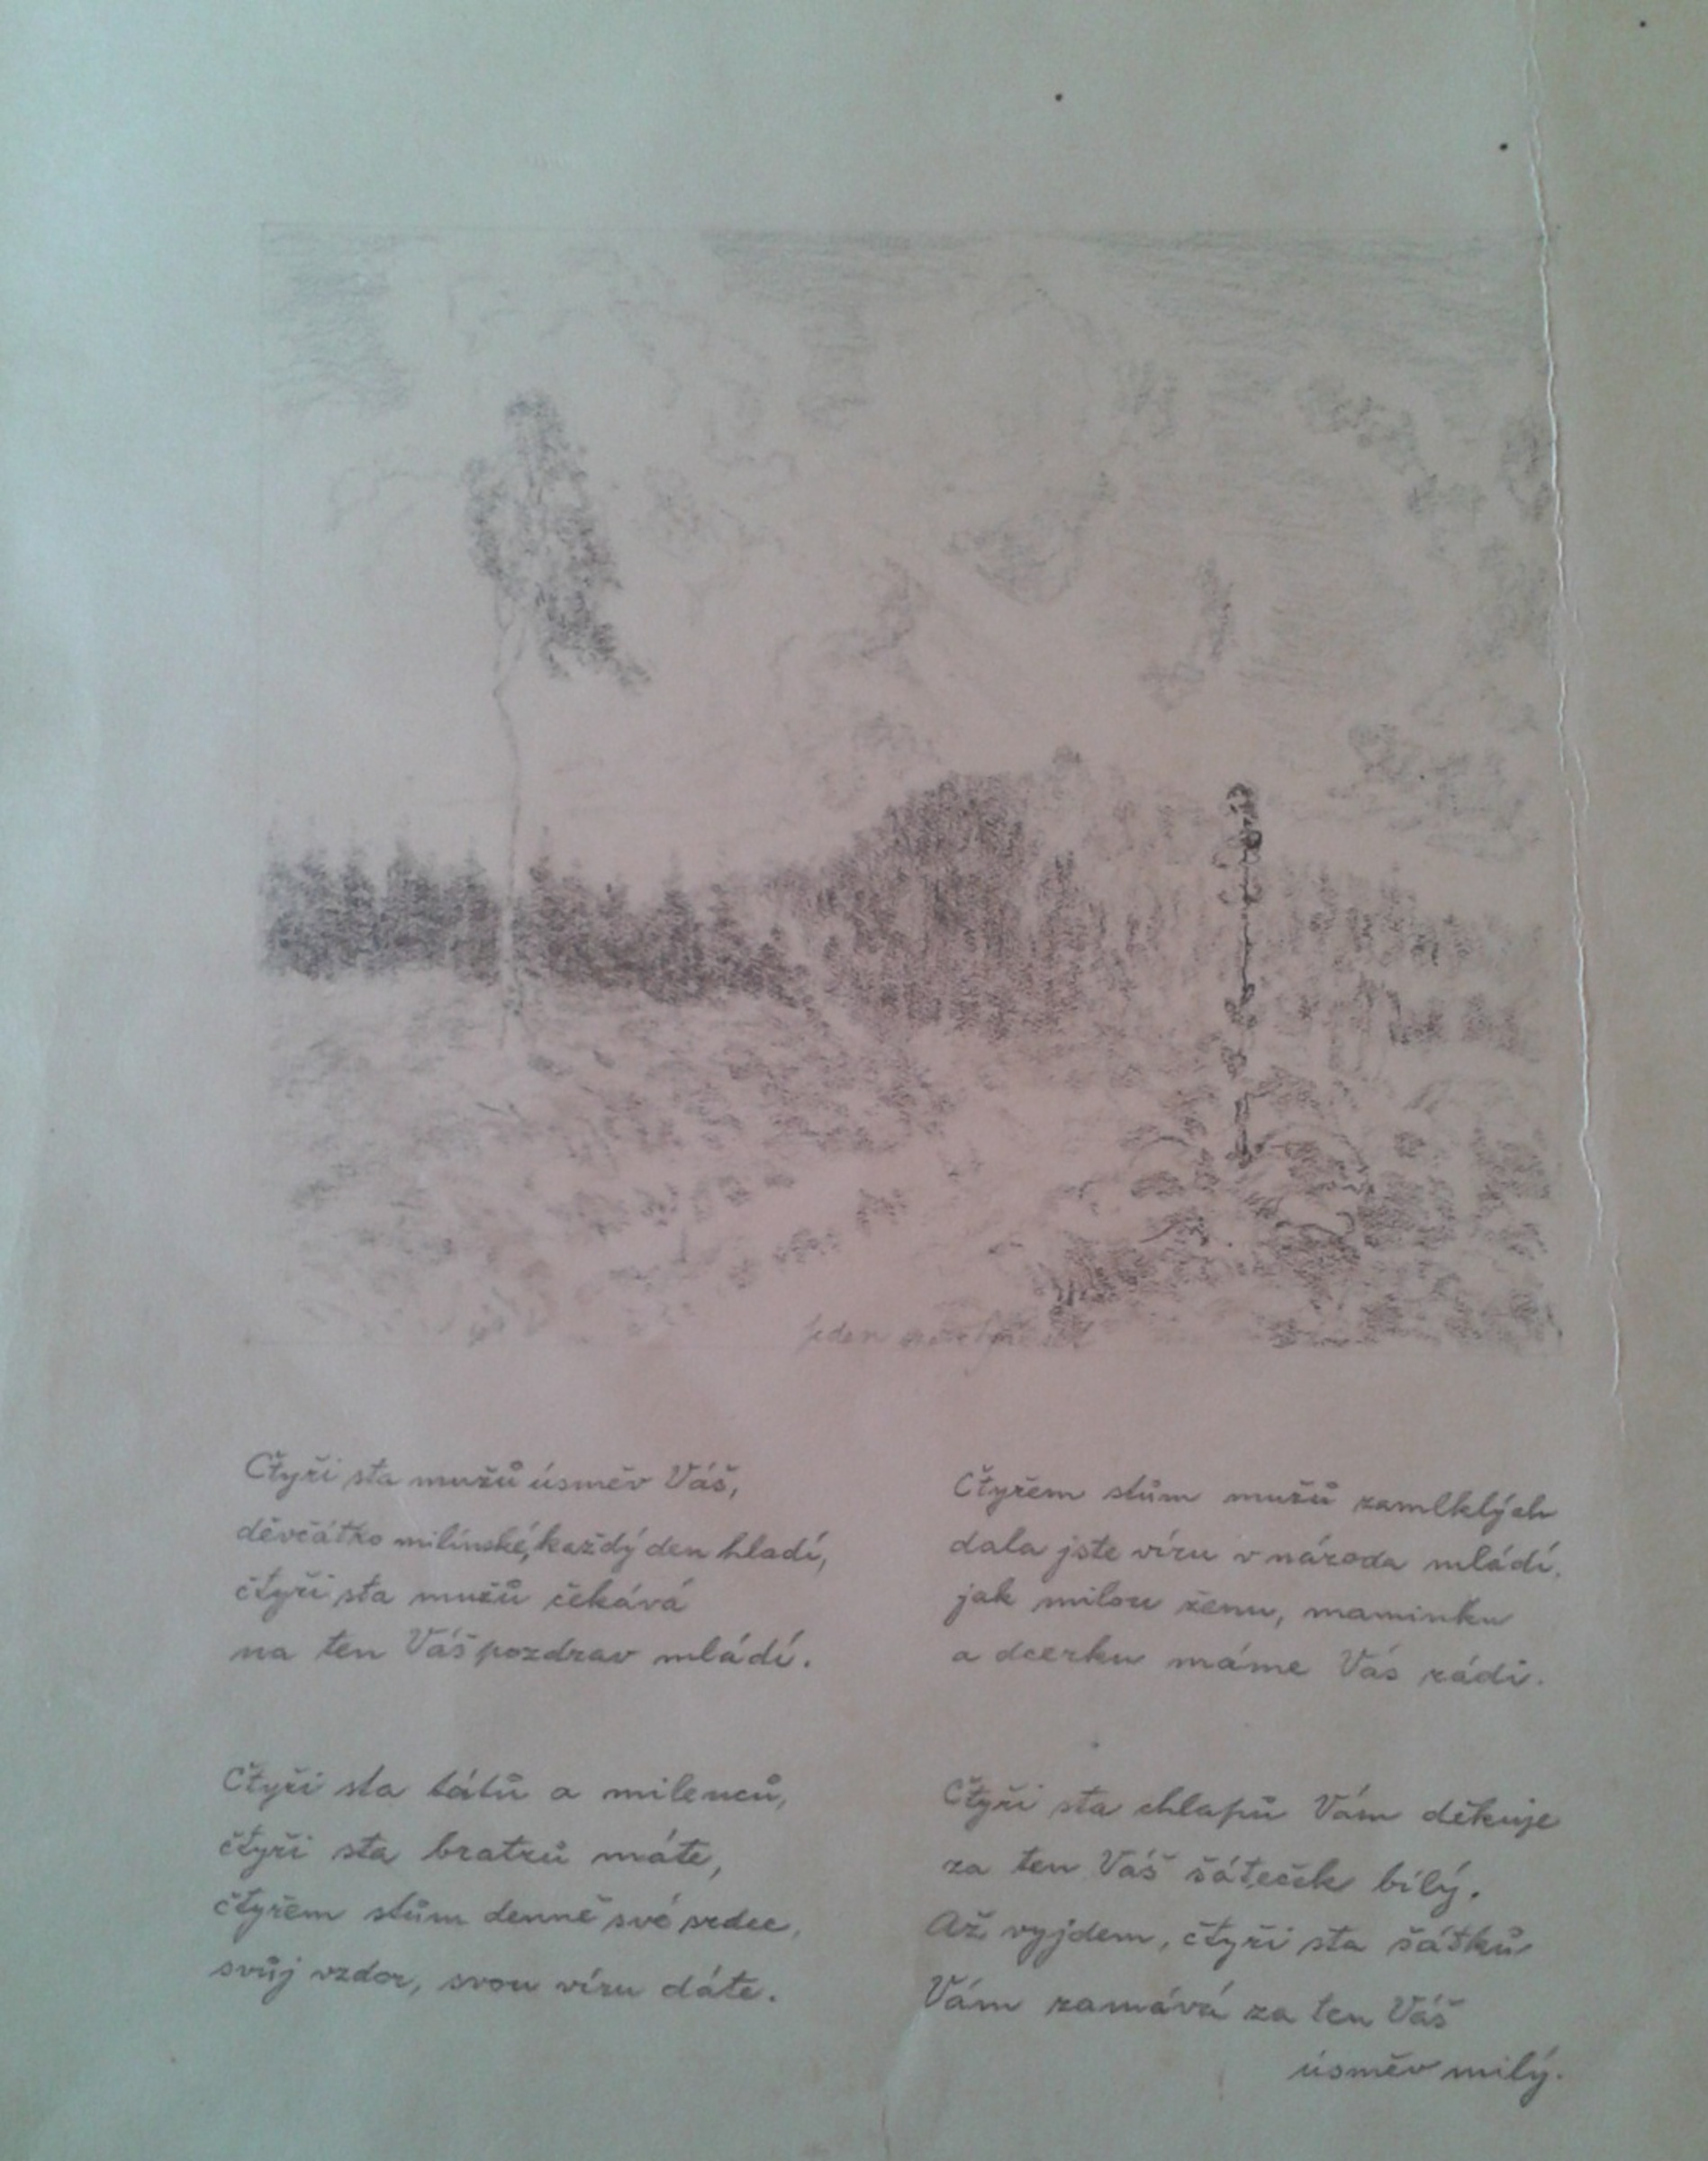 jeden
Čtyři sta mužů úsměv Váš,
děvčátko milínské, každý den hladí,
čtyři sta mužů čekává
na ten Váš pozdrav mládí.
Čtyři sta tátů a milenců,
čtyři sta bratrů máte,
čtyřem stům denně své srdce,
svůj vzdor, svou víru dáte.
Čtyřem stům mužů zamlklých
dala jste víru v národa mládí,
jak milou ženu, maminku
a dcerku máme Vás rádi.
Čtyři sta chlapů Vám děkuje
za ten Váš šáteček bílý.
Až vyjdem, čtyři sta šátků
Vám zamává za ten Váš
úsměv milý.